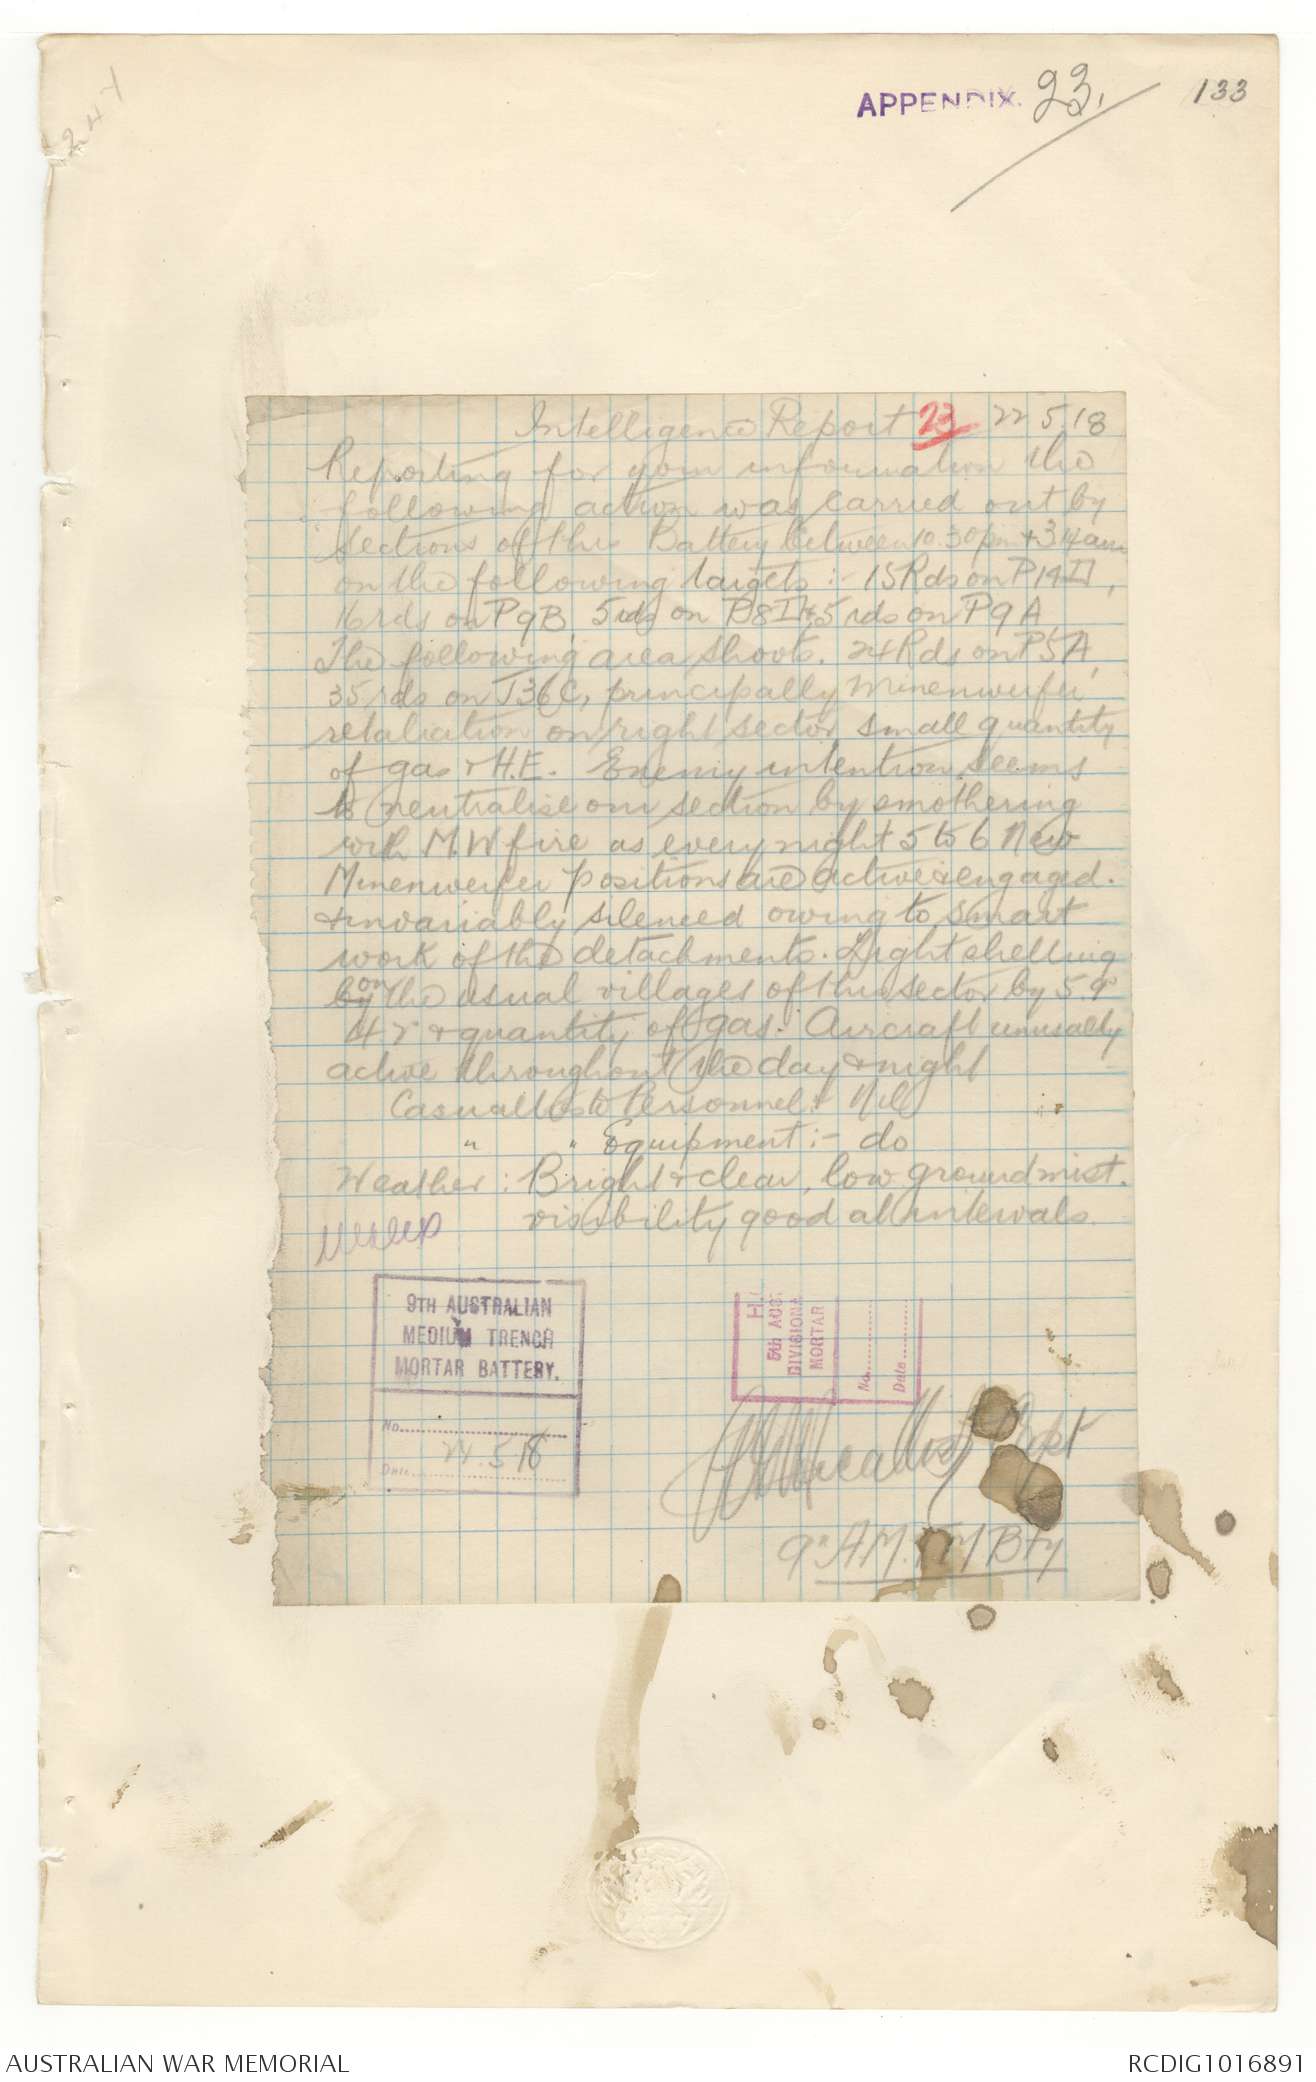 244
APPENDIX. 23.
133
Intelligence Report 23 22 5.18
Reporting for your information the
following action was carried out by
sections of this Battery between 10.30pm + 3.14am
on the following targets :- 15Rds on P14D,
16rds on P9B, 5rds on P8D, 5 rds on P9A
The following area shoots. 24Rds on P5A,
35rds on J36C, principally Minenwerfer
retaliation on right sector small quantity
of gas + H.E. Enemy intention seems
to neutralise our section by smothering
with M.W fire as every night 5 to 6 New
Minenwerfer positions are active & engaged.
& invariably silenced owing to smart
work of the detachments. Light shelling
by on the usual villages of this sector by 5.9"
4.2" & quantity of gas. Aircraft unusually
active throughout the day & night
Casualties to Personnel :- Nil
" " Equipment :- do
Weather : Bright & clear, low ground mist.
visibility good at intervals.
9TH AUSTRALIAN
MEDIUM TRENCH
MORTAR BATTERY.
No.
Date 22.5.18
H.
5th AUS
DIVISIONA
MORTAR
No.
Date
Capt
9th A.M.T.M Bty
AUSTRALIAN WAR MEMORIAL
RCDIG1016891